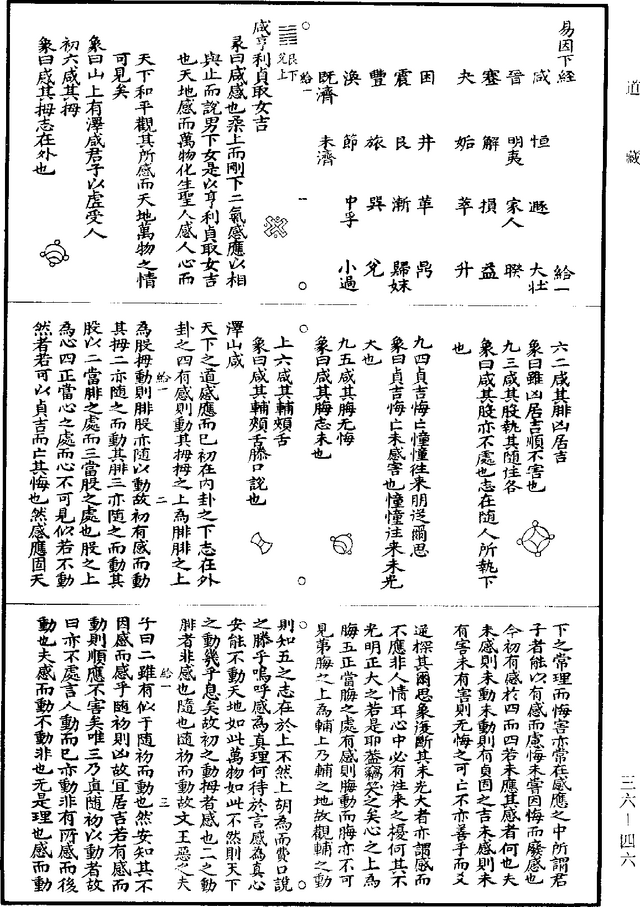 道藏
易因下經
給一
咸 恒 遯 大壯
晉 明夷 家人 睽
蹇 解 損 益
夬 姤 萃 升
困 井 革 鼎
震 艮 漸 歸妹
豐 旅 巽 兌
渙 節 中孚 小過
既濟 未濟
給一 一
艮下
兌上
咸亨利貞取女吉
彖曰咸感也柔上而剛下二氣感應以相
與止而說男下女是以亨利貞取女吉
也天地感而萬物化生聖人感人心而
天下和平觀其所感而天地萬物之情
可見矣
象曰山上有澤咸君子以虛受人
初六咸其拇
象曰咸其拇志在外也
六二咸其腓凶居吉
象曰雖凶居吉順不害也
九三咸其股執其隨往吝
象曰咸其股亦不處也志在隨人所執下
也
九四貞吉悔亡憧憧往來朋從爾思
象曰貞吉悔亡未感害也憧憧往來未光
大也
九五咸其脢无悔
象曰咸其脢志末也
上六咸其輔頰舌
象曰咸其輔頰舌滕口說也
澤山咸
天下之道感應而已初在內卦之下志在外
卦之四有感則動其拇拇之上為腓腓之上
給一 二
為股拇動則腓股亦隨以動故初有感而動
其拇二亦隨之而動其腓三亦隨之而動其
股以二當腓之處而三當股之處也股之上
為心四正當心之處而心不可見似若不動
然者若可以貞吉而亡其悔也然感應固天
下之常理而悔害亦常在感應之中所謂君
子者能以有感而慮悔未嘗因悔而廢感也
今初有感於四而四若未應其感者何也夫
未感則未動未動則有貞固之吉未感則未
有害未有害則无悔之可亡不亦善乎而又
遥探其爾思象漫斷其未光大者亦謂感而
不應非人情耳心中必有往來之擾何其不
光明正大之若是耶蓋竊笑之矣心之上為
脢五正當脢之處有感則脢動而脢亦不可
見第脢之上為輔上乃輔之地故觀輔之動
則知五之志在於上不然上胡為而費口說
之滕乎嗚呼感為真理何待於言感為真心
安能不動天地如此萬物如此不然則天下
之動幾乎息矣故初之動拇者感也二之動
腓者非感也隨也隨初而動故文王惡之夫
給一 三
子曰二雖有似于隨初而動也然安知其不
因感而感乎隨初則凶故宜居吉若有感而
動則順應不害矣唯三乃真隨初以動者故
曰亦不處言人動而已亦動非有所感而後
動也夫感而動不動非也无是理也感而動
三六—四六